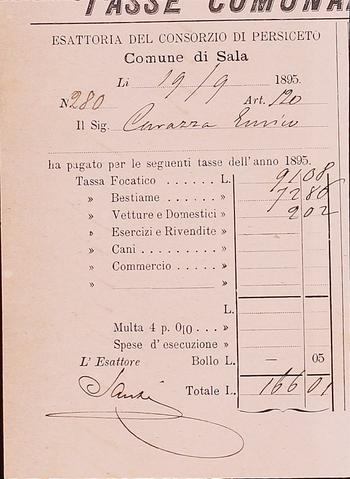 TASSE COMUNA
ESATTORIA DEL CONSORZIO DI PERSICETO
Comune di Sala
Li 19/9 1895.
N. 280 Art. 120
Il Sig. Carazza Enrico
ha pagato per le seguenti tasse dell'anno 1895.
Tassa Focatico . . . . . . L. 91 08
» Bestiame . . . . . . » 72 86
» Vetture e Domestici » 2 02
» Esercizi e Rivendite »
» Cani . . . . . . . . . »
» Commercio . . . . . . »
» »
L.
Multa 4 p. 0|0 . . . »
Spese d'esecuzione »
L'Esattore Bollo L. — 05
Totale L. 166 01